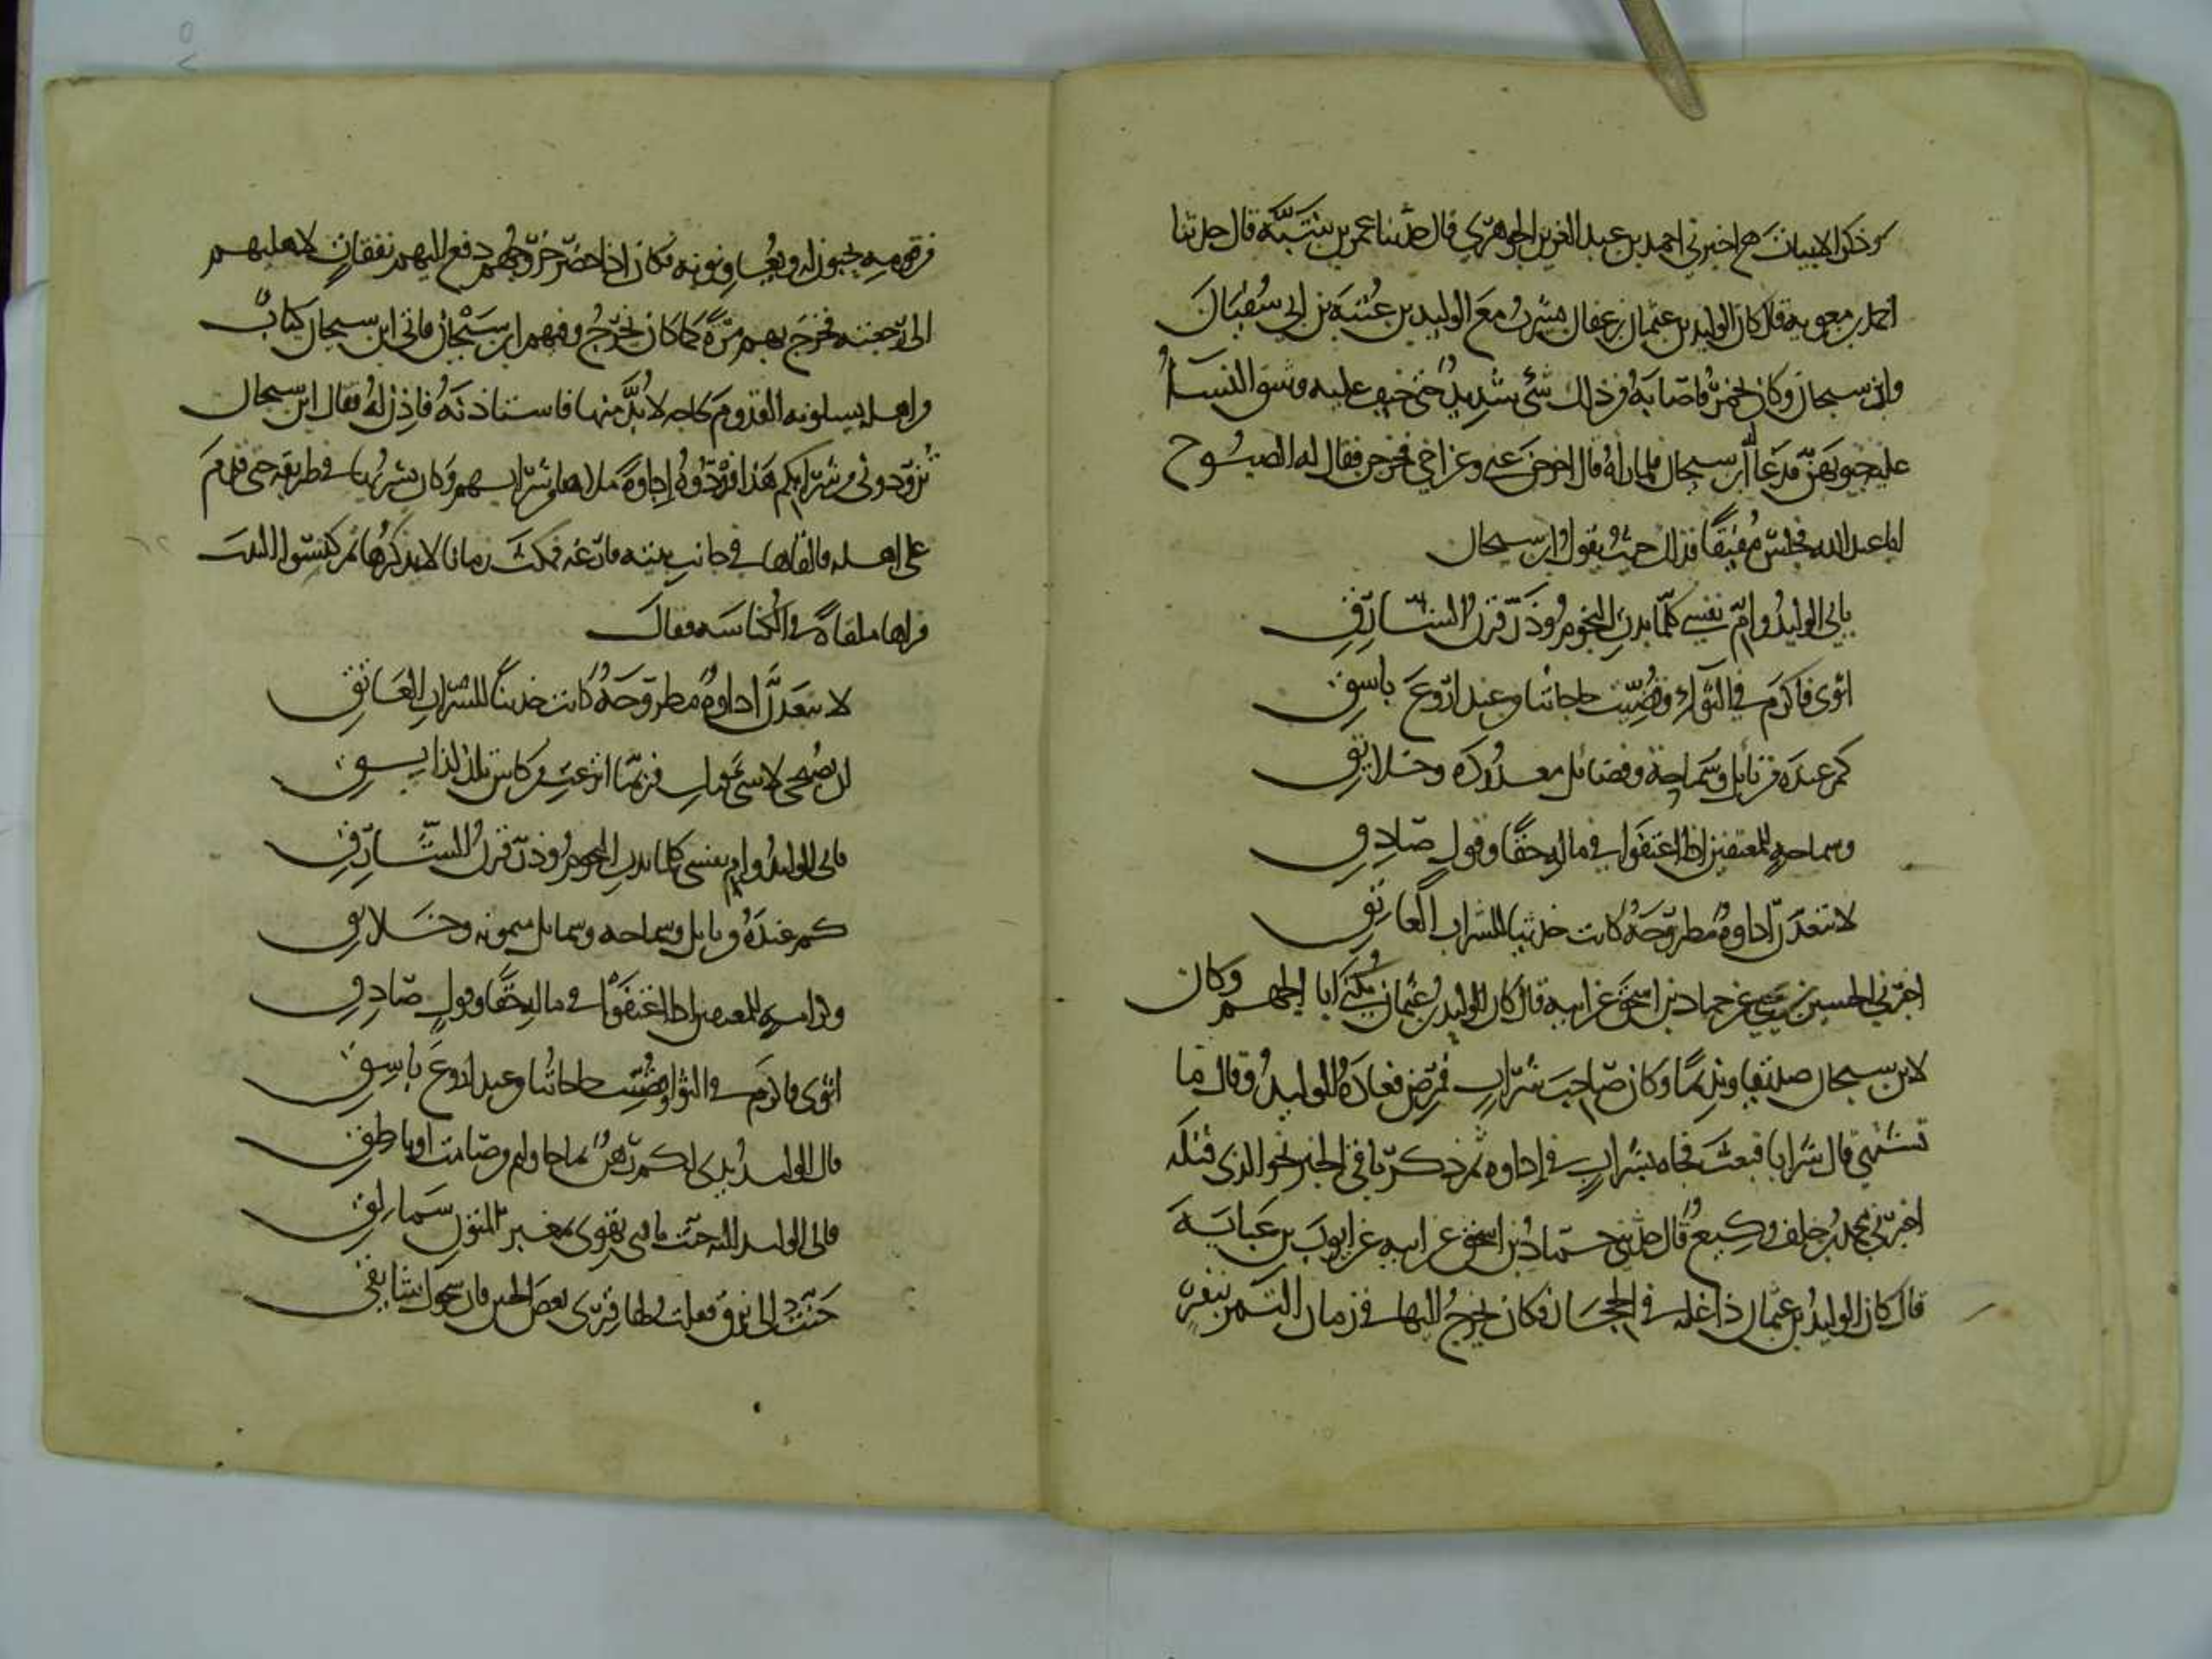 وذكر الابيات ح اخبرني احمد بن عبد العزيز الجوهري قال حدثنا عمر بن شبَّة قال حدثنا
احمد بن معويه قال كان الوليد بن عثمان بن عفان يشرب مع الوليد بن عُتبَة بن ابي سفيان
وابن سيحان وكان لخمر فاصابه من ذلك شيء شديد حتى خيف عليه وشق النساء
عليه جيوبهن فدعا ابن سيحان فلما راه قال اخرجن عني وعن اخي فخرجن فقال له الصبوح
ابا عبد الله فجلس مفيقا فذلك حيث يقول ابن سيحان
بابي الوليد وام نفسي كلما بدت النجوم وذر قرن الشارق
اثوى فاكرم في الثواء وقضيت حاجاتنا من عند اروع باسق
كم عنده من نايل وسماحة وفضائل معدودة وخلائق
وسماحة للمعتفين اذا اعتفوا في ماله حقا وقول صادق
لا تبعدن اداوة مطروحة كانت حديثا للشراب العاتق
اخبرني الحسين بن يحيى عن حماد بن اسحق عن ابيه قال كان الوليد بن عثمان يكنى ابا الجهم وكان
لابن سيحان صديقا ونديما وكان صاحب شراب فمرض فعاده الوليد وقال ما
تشتهي قال شرابا فبعث فجاه بشراب في اداوه ثم ذكر باقي الخبر نحو الذي قبله
اخبرني محمد بن خلف وكيع قال حدثني حماد بن اسحق عن ابيه عن ايوب بن عباية
قال كان الوليد بن عثمان ذا غلة في الحجاز فكان يخرج اليها في زمان التمر بنفر
من قومه يجنون له ويعاونونه فكان اذا حضر خروجهم دفع اليهم نفقات لاهليهم
الى رجعته فخرج بهم مرة كما كان يخرج وفيهم ابن سيحان فاتى ابن سيحان كتاب
من اهله يسلونه القدوم لحاجه لا بد منها فاستاذنه فاذن له فقال ابن سيحان
زودوني من شرابكم هذا فزودوه اداوة ملاها من شرابهم وكان يشربها في طريقه حتى قدم
على اهله فالقاها في جانب بيته فارغه فمكث زمانا لا يذكرها ثم كنسوا البيت
فراها ملقاة في الكناسه فقال
لا تبعدن اداوة مطروحة كانت حديثا للشراب العاتق
ان تصبحي لا شيء فيك فربما اترعت من كاس تلذ لذايق
بابي الوليد وام نفسي كلما بدت النجوم وذر قرن الشارق
كم عنده من نايل وسماحه وشمايل ميمونه وخلايق
وكرامة للمعتفين اذا اعتفوا في ماله حقا وقول صادق
اثوى فاكرم في الثوا وقضيت حاجاتنا من عند اروع باسق
قال الوليد يدي لكم رهن بما حاولتم من صامت او ناطق
فالى الوليد اليوم حنت ناقتي تهوي بمغبر المتون سمالق
حنت الى برق فقلت لها قري بعض الحنين فان سجوك شايقي